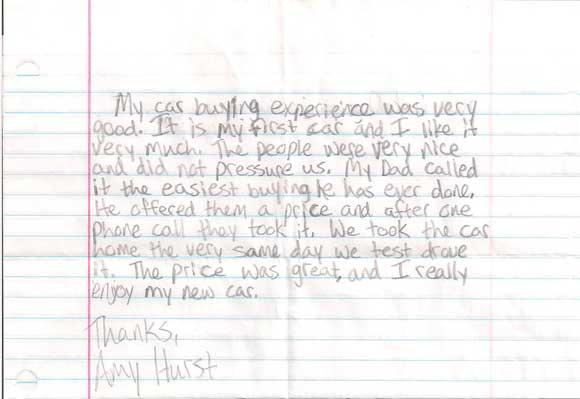 My car buying experience was very
good. It is my first car and I like it
very much. The people were very nice
and did not pressure us. My Dad called
it the easiest buying he has ever done.
He offered them a price and after one
phone call they took it. We took the car
home the very same day we test drove
it. The price was great, and I really
enjoy my new car.
Thanks,
Amy Hurst